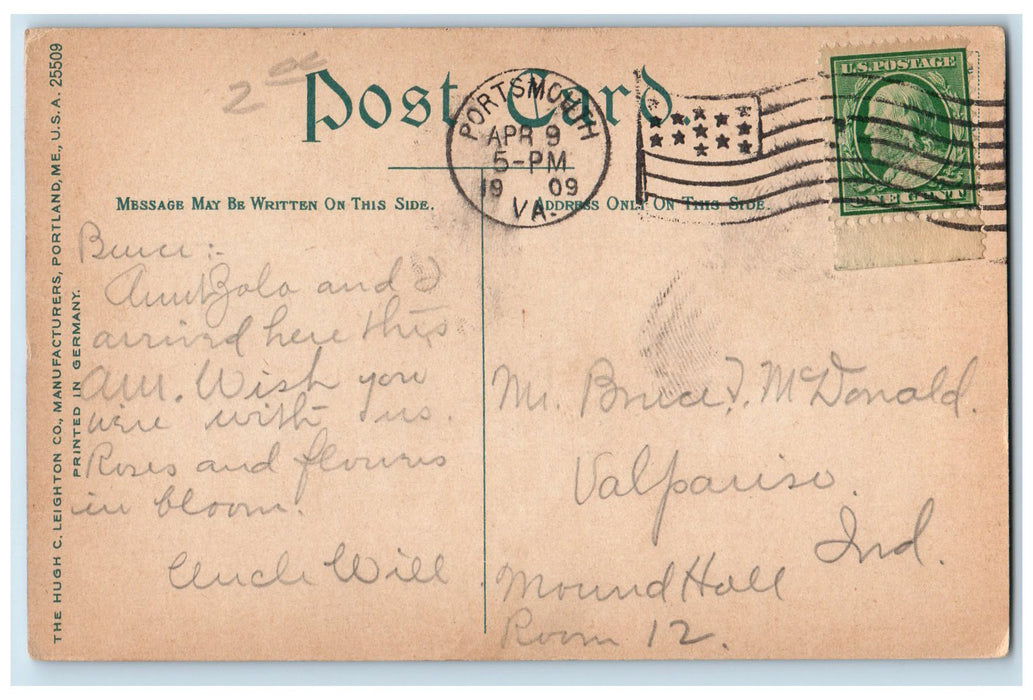 THE HUGH C. LEIGHTON CO., MANUFACTURERS, PORTLAND, ME., U.S.A. 25509
PRINTED IN GERMANY.
2 00
Post Card.
PORTSMOUTH
APR 9
5-PM
19 09
VA.
U.S. POSTAGE
ONE CENT
MESSAGE MAY BE WRITTEN ON THIS SIDE.
ADDRESS ONLY ON THIS SIDE.
Bruce:-
Aunt Zola and I
arrived here this
am. Wish you
were with us.
Roses and flowers
in bloom.
Uncle Will
Mr. Bruce J. McDonald.
Valpariso.
Ind.
Mound Hall
Room 12.